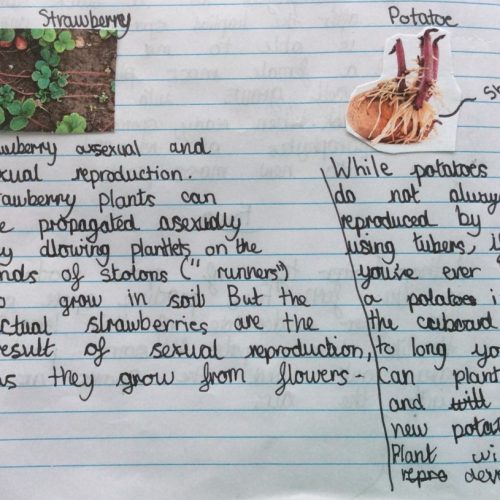 Strawberry
awberry asexual and
xual reproduction.
rawberry plants can
e propagated asexually
y allowing plantlets on the
nds of stolons ("runners")
o grow in soil But the
ctual strawberries are the
esult of sexual reproduction,
as they grow from flowers-
Potatoe
Sh
While potatoes
do not always
reproduced by
using tubers, if
you've ever
a potatoe i
the cuboard
to long yo
Can plant
and will
new potat
Plant wi
repro deve